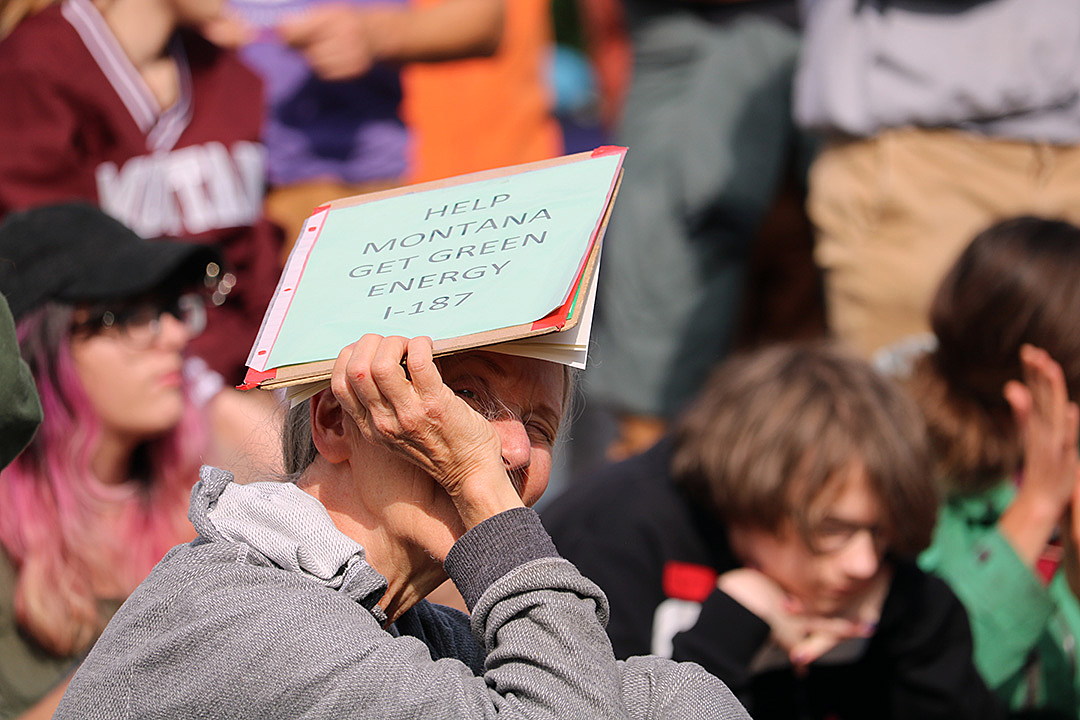 MONTAN
HELP
MONTANA
GET GREEN
ENERGY
I-187